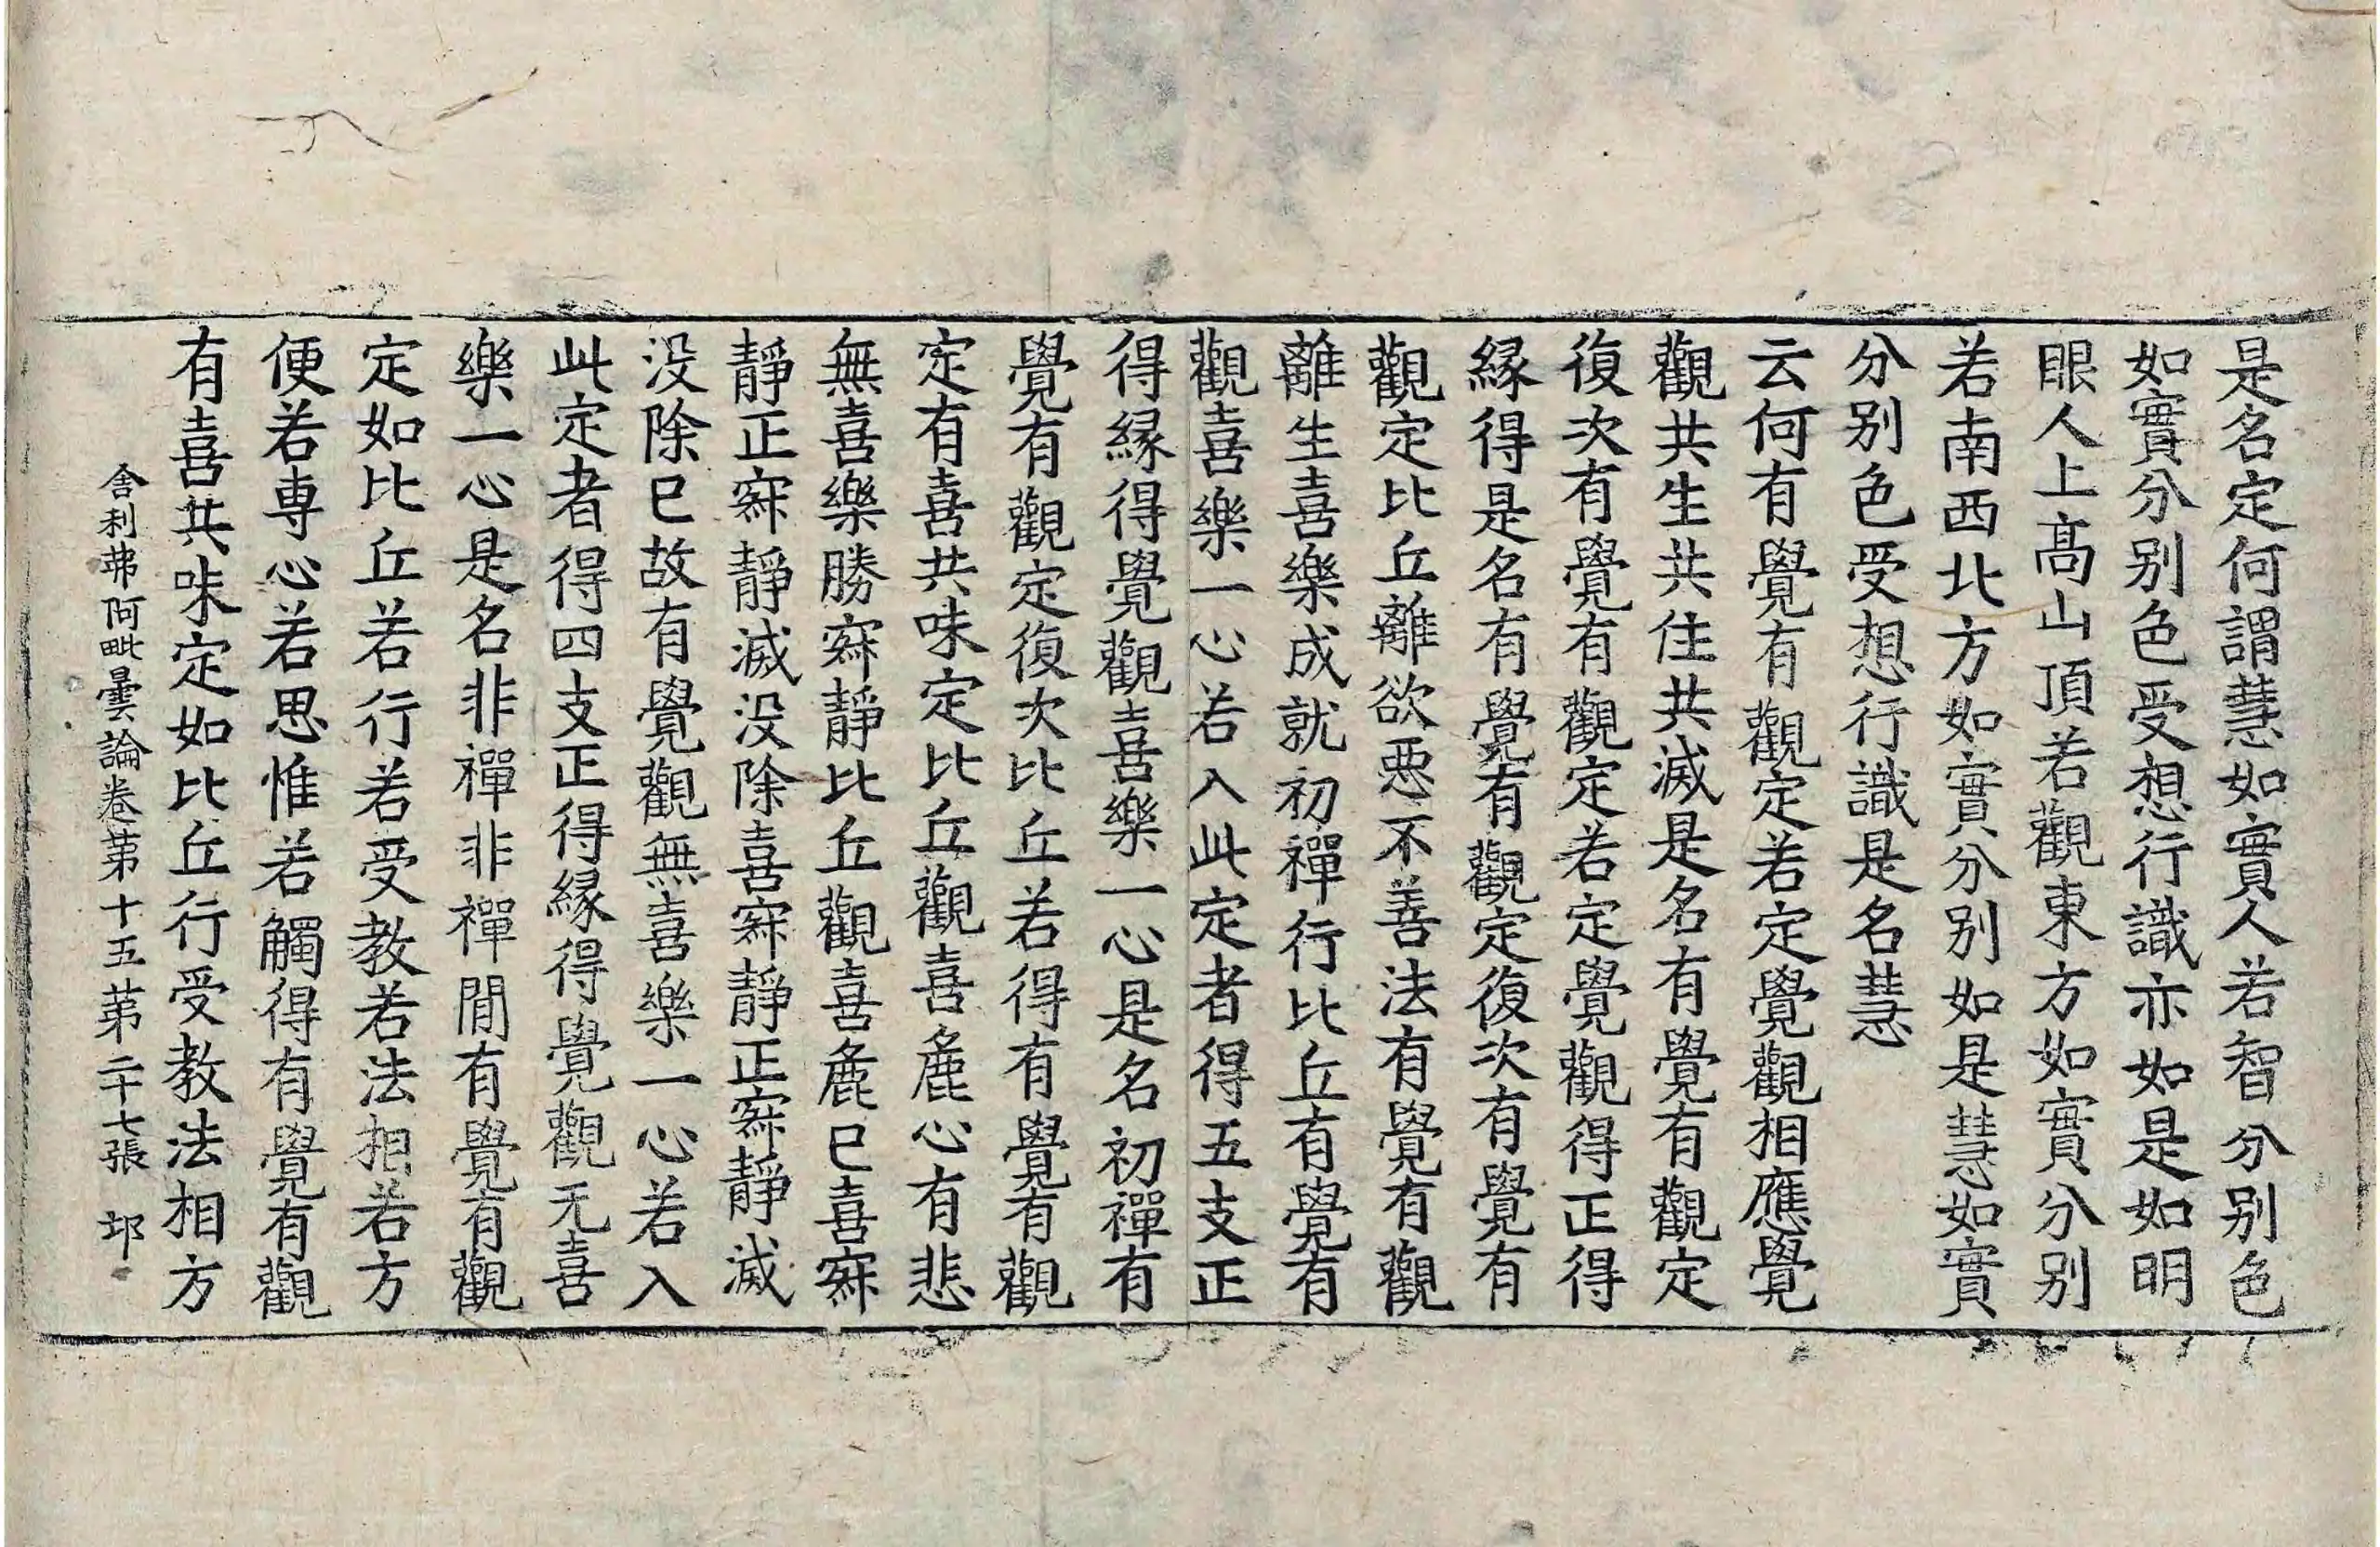 是名定何謂慧如實人若智分别色
如實分别色受想行識亦如是如明
眼人上髙山頂若觀東方如實分别
若南西北方如實分别如是慧如實
分别色受想行識是名慧
云何有覺有觀定若定覺觀相應覺
觀共生共住共滅是名有覺有觀定
復次有覺有觀定若定覺觀得正得
縁得是名有覺有觀定復次有覺有
觀定比丘離欲惡不善法有覺有觀
離生喜樂成就初禪行比丘有覺有
觀喜樂一心若入此定者得五支正
得縁得覺觀喜樂一心是名初禪有
覺有觀定復次比丘若得有覺有觀
定有喜共味定比丘觀喜麁心有悲
無喜樂勝寂靜比丘觀喜麁已喜寂
靜正寂靜滅没除喜寂靜正寂靜滅
没除已故有覺觀無喜樂一心若入
此定者得四支正得縁得覺觀无喜
樂一心是名非禪非禪間有覺有觀
定如比丘若行若受教若法相若方
便若專心若思惟若觸得有覺有觀
有喜共味定如比丘行受教法相方
舍利弗阿毗曇論卷苐十五苐二十七張 邛